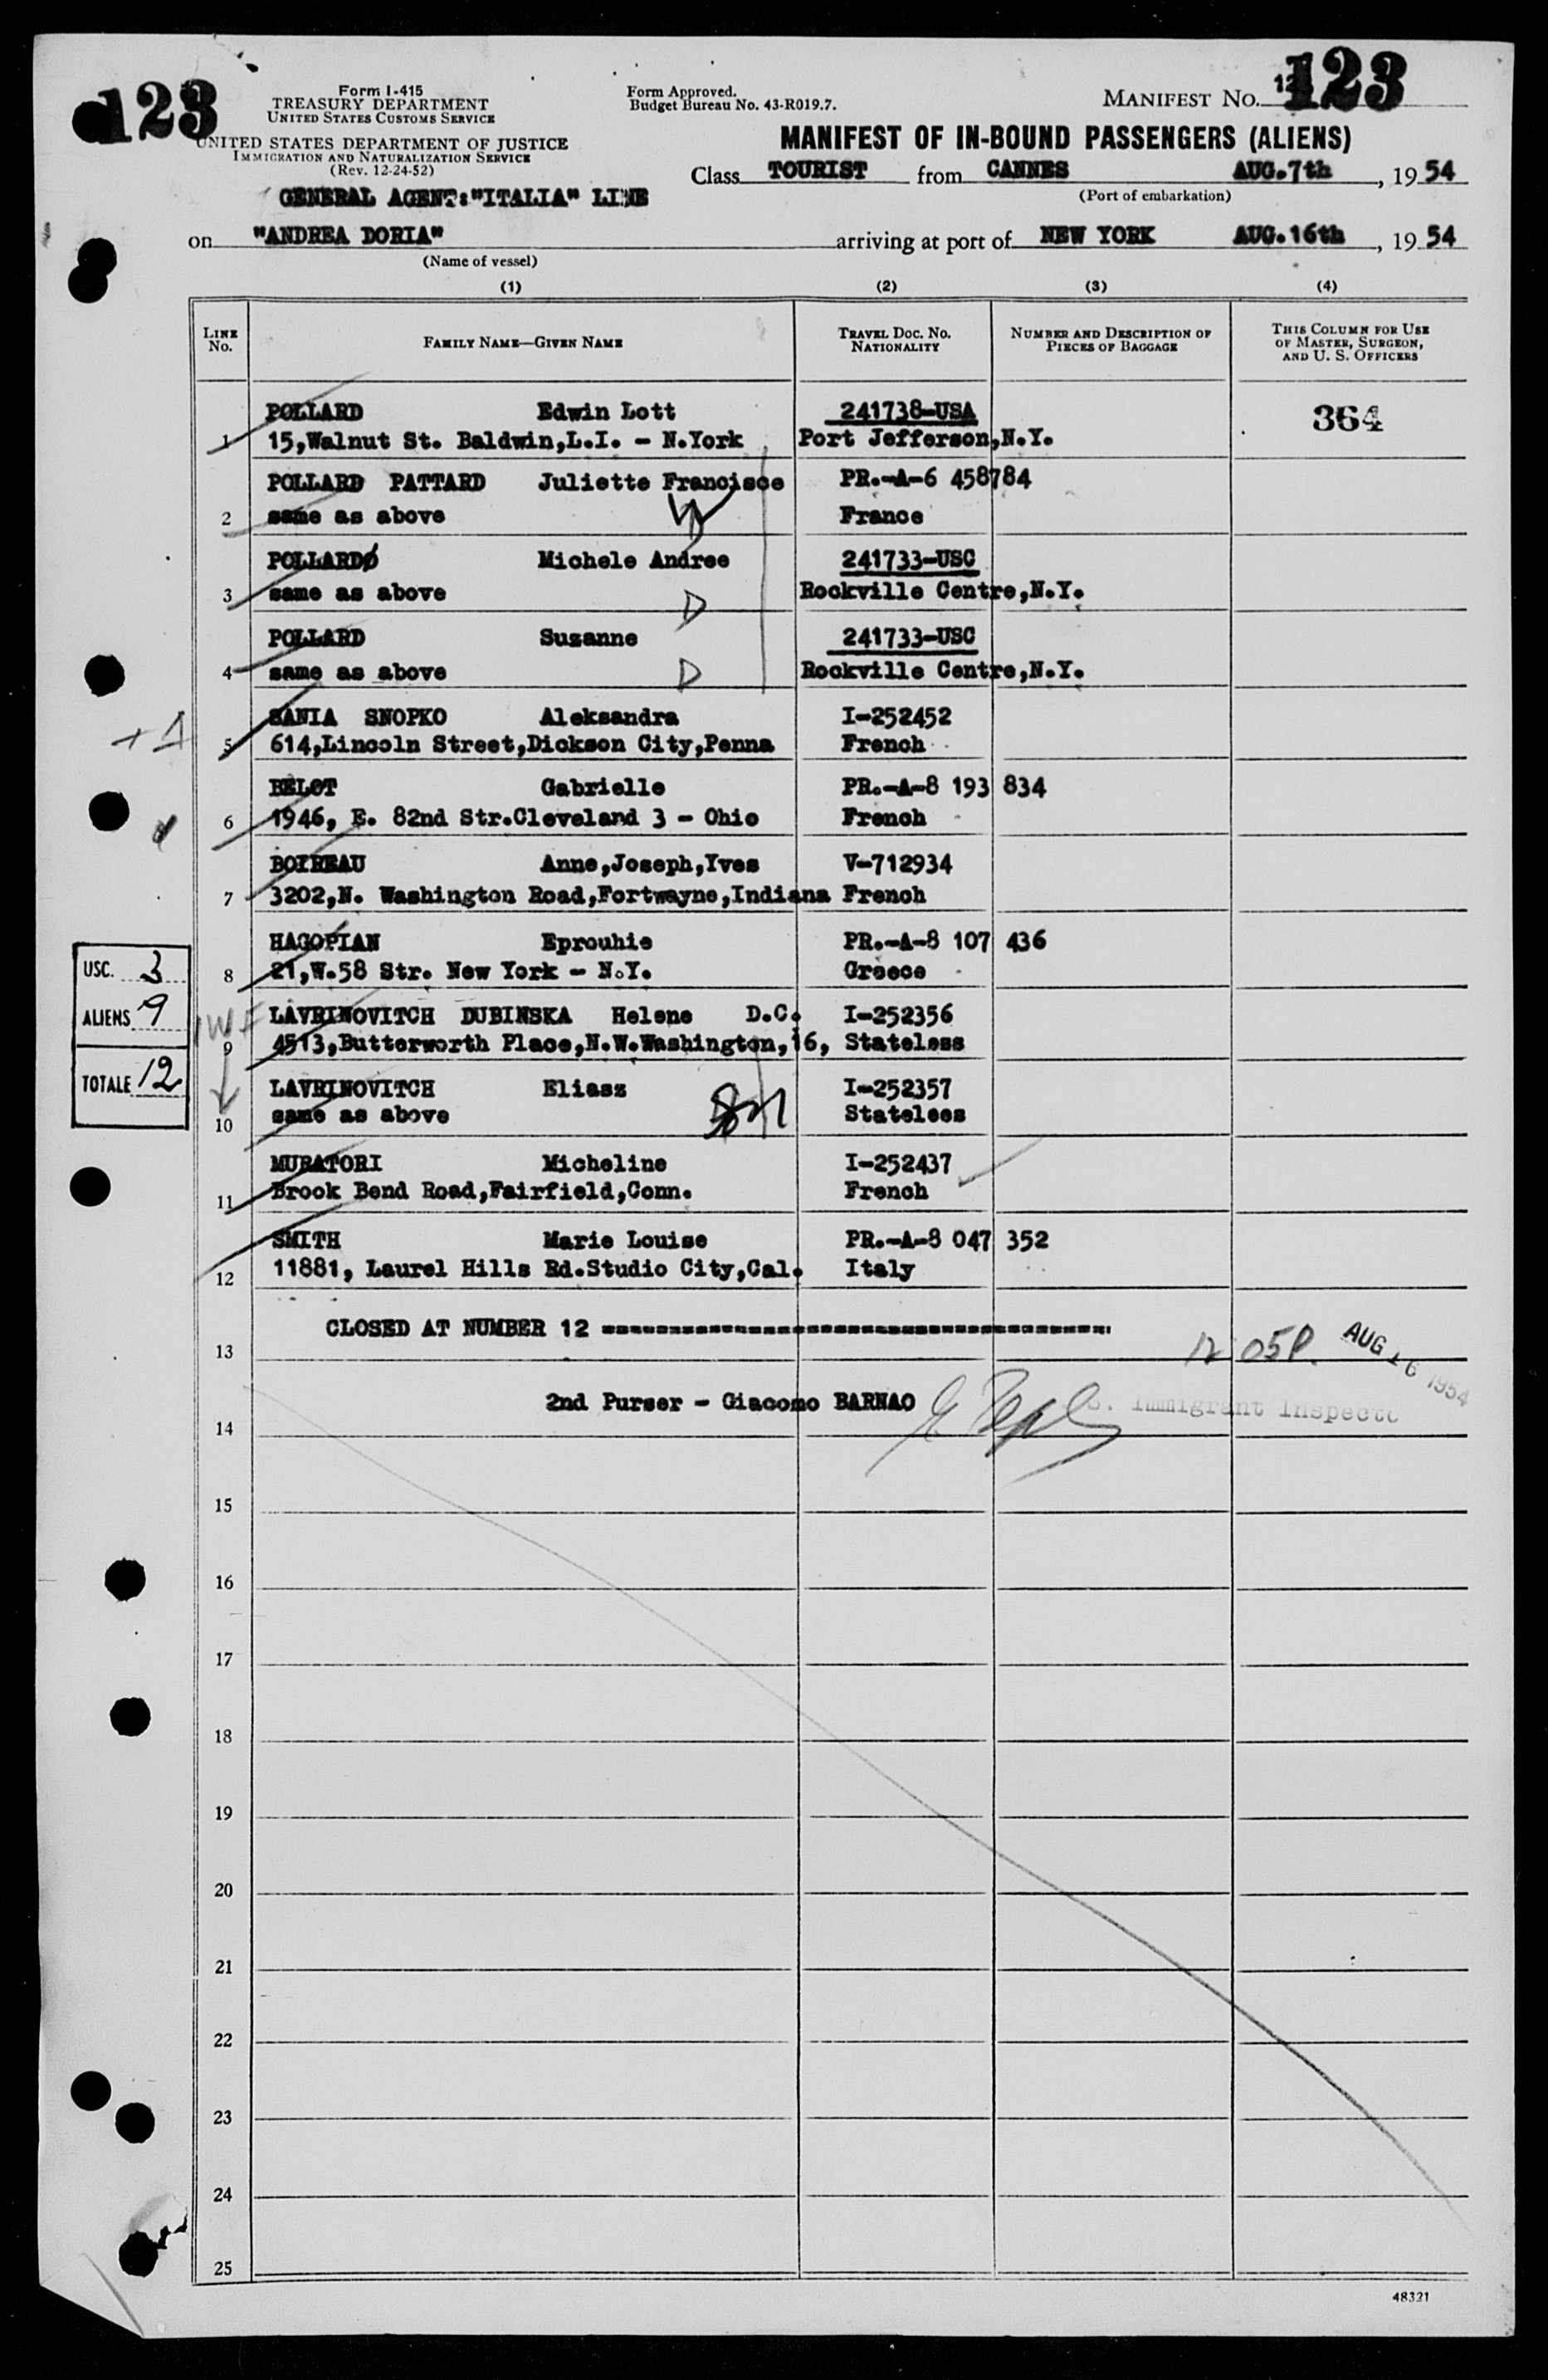 123
Form I-415
TREASURY DEPARTMENT
UNITED STATES CUSTOMS SERVICE
UNITED STATES DEPARTMENT OF JUSTICE
IMMIGRATION AND NATURALIZATION SERVICE
(Rev. 12-24-52)
Form Approved.
Budget Bureau No. 43-R019.7.
MANIFEST NO. 123
MANIFEST OF IN-BOUND PASSENGERS (ALIENS)
Class TOURIST from CANNES AUG.7th, 1954
(Port of embarkation)
GENERAL AGENT:"ITALIA" LINE
on "ANDREA DORIA" arriving at port of NEW YORK AUG.16th, 1954
(Name of vessel)
(1) (2) (3) (4)
LINE No. FAMILY NAME—GIVEN NAME TRAVEL DOC. NO. NATIONALITY NUMBER AND DESCRIPTION OF PIECES OF BAGGAGE THIS COLUMN FOR USE OF MASTER, SURGEON, AND U. S. OFFICERS
POLLARD Edwin Lott 241738-USA 364
1 15,Walnut St. Baldwin,L.I. - N.York Port Jefferson,N.Y.
POLLARD PATTARD Juliette Francisce PR.-A-6 458784
2 same as above France
POLLARDØ Michele Andree 241733-USC
3 same as above D Rockville Centre,N.Y.
POLLARD Suzanne 241733-USC
4 same as above D Rockville Centre,N.Y.
SANIA SNOPKO Aleksandra I-252452
5 614,Lincoln Street,Dickson City,Penna French
BELOT Gabrielle PR.-A-8 193 834
6 1946, E. 82nd Str.Cleveland 3 - Ohio French
BOIREAU Anne,Joseph,Yves V-712934
7 3202,N. Washington Road,Fortwayne,Indiana French
HAGOPIAN Eprouhie PR.-A-8 107 436
8 21,W.58 Str. New York - N.Y. Greece
LAVRINOVITCH DUBINSKA Helene D.C. I-252356
9 4513,Butterworth Place,N.W.Washington,16, Stateless
LAVRINOVITCH Eliasz I-252357
10 same as above Stateless
MURATORI Micheline I-252437
11 Brook Bend Road,Fairfield,Conn. French
SMITH Marie Louise PR.-A-8 047 352
12 11881, Laurel Hills Rd.Studio City,Cal. Italy
USC. 3
ALIENS 9
TOTALE 12
CLOSED AT NUMBER 12
13 12 05P. AUG 16 1954
2nd Purser - Giacomo BARNAO Immigrant Inspecto
14
15
16
17
18
19
20
21
22
23
24
25
48321